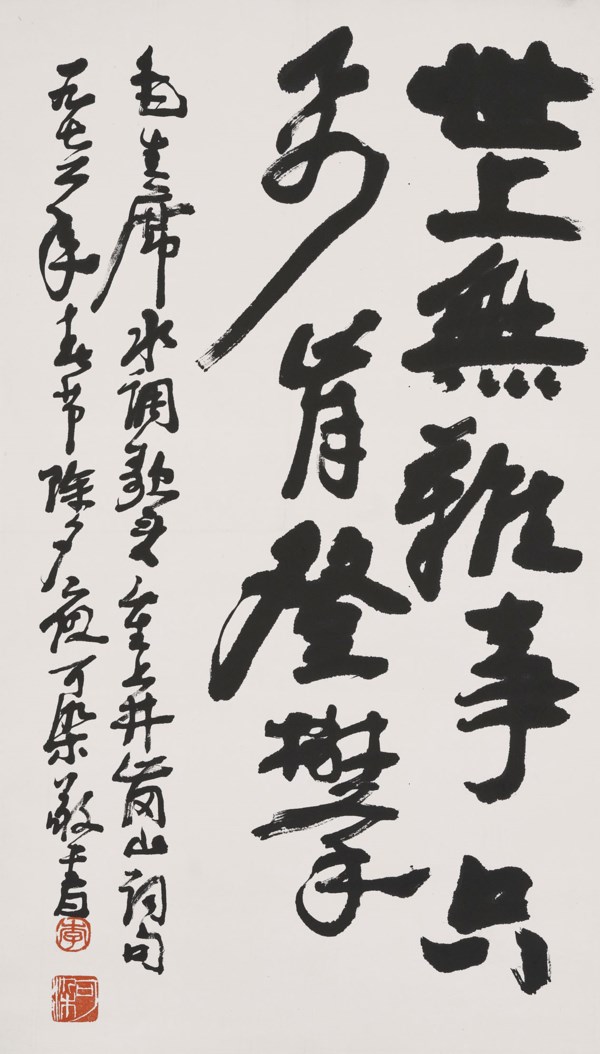 世上無難事只
要肯登攀
毛主席水调歌头重上井岗山词句
一九七六年春节除夕夜可染敬书
李
可染